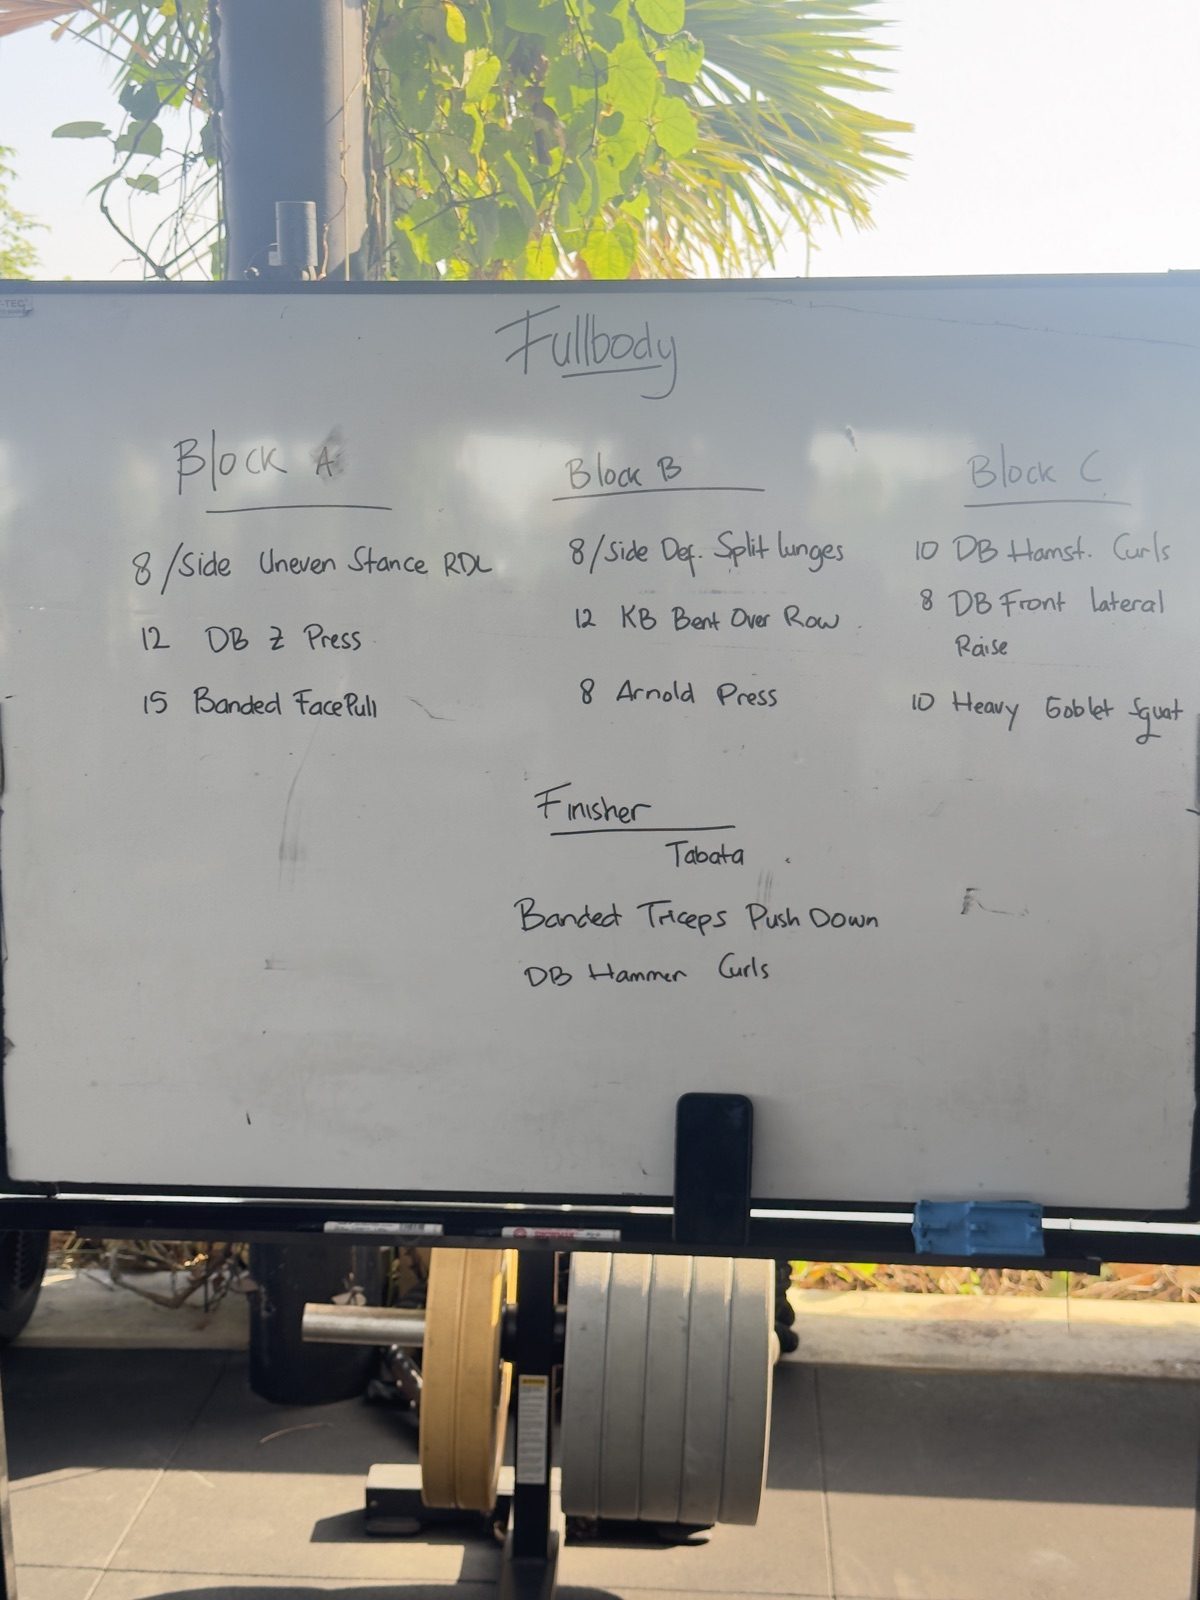 Fullbody
Block A
8/Side Uneven Stance RDL
12 DB Z Press
15 Banded FacePull
Block B
8/Side Def. Split lunges
12 KB Bent Over Row
8 Arnold Press
Block C
10 DB Hamst. Curls
8 DB Front Lateral
Raise
10 Heavy Goblet Squat
Finisher
Tabata
Banded Triceps Push Down
DB Hammer Curls